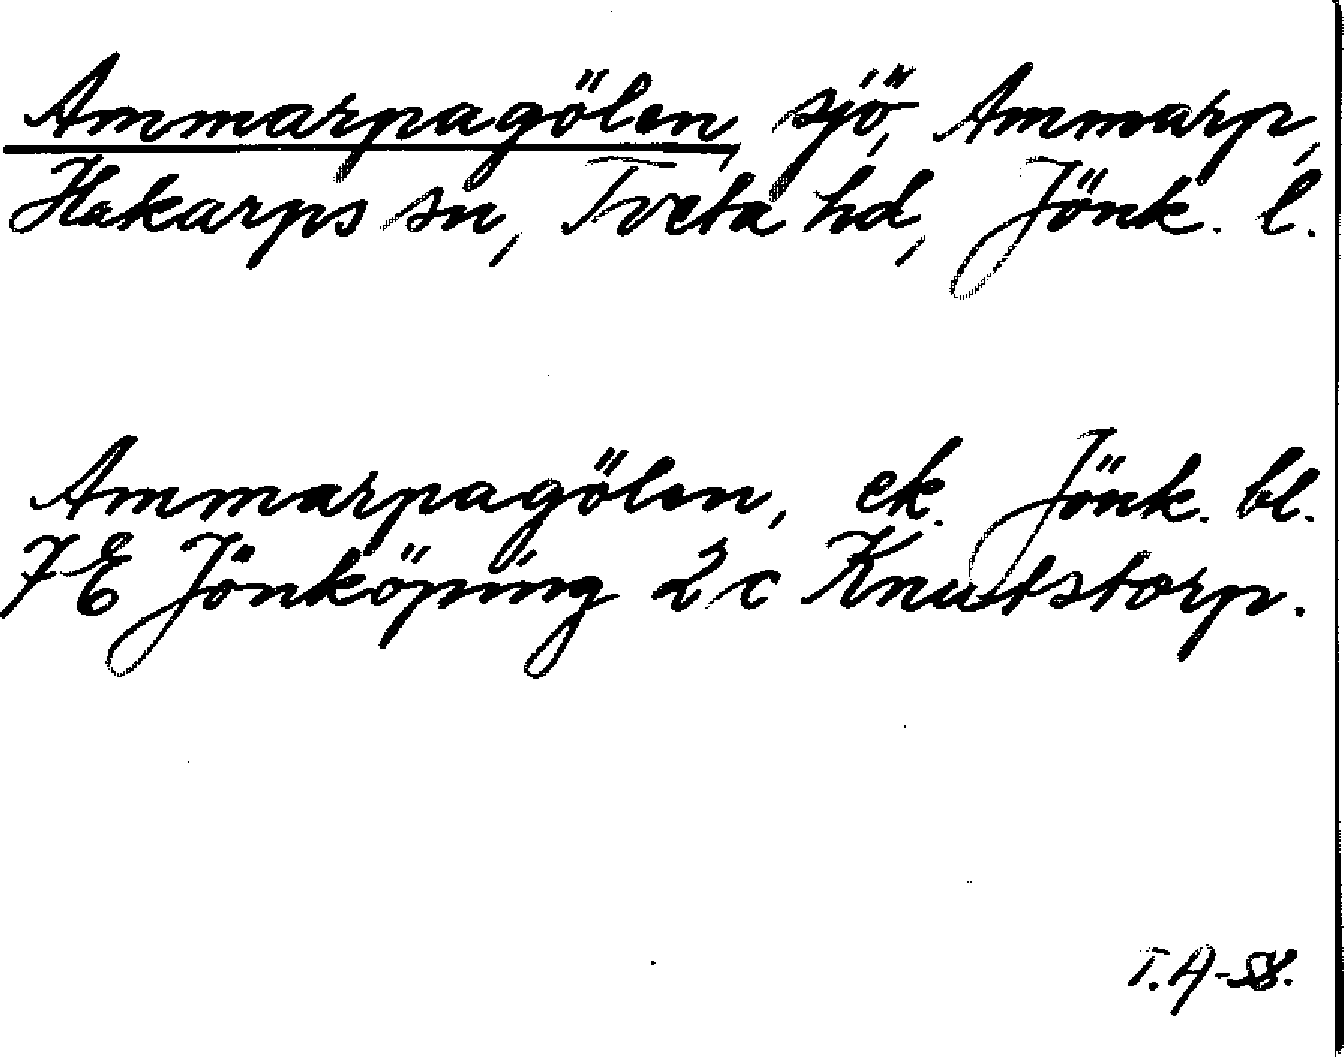 Ammarpagölen, sjö, Ammarp,
Hakarps sn, Tveta hd, Jönk. l.
Ammarpagölen, ek. Jönk. bl.
7E Jönköping 2c Knutstorp.
T.A-58.